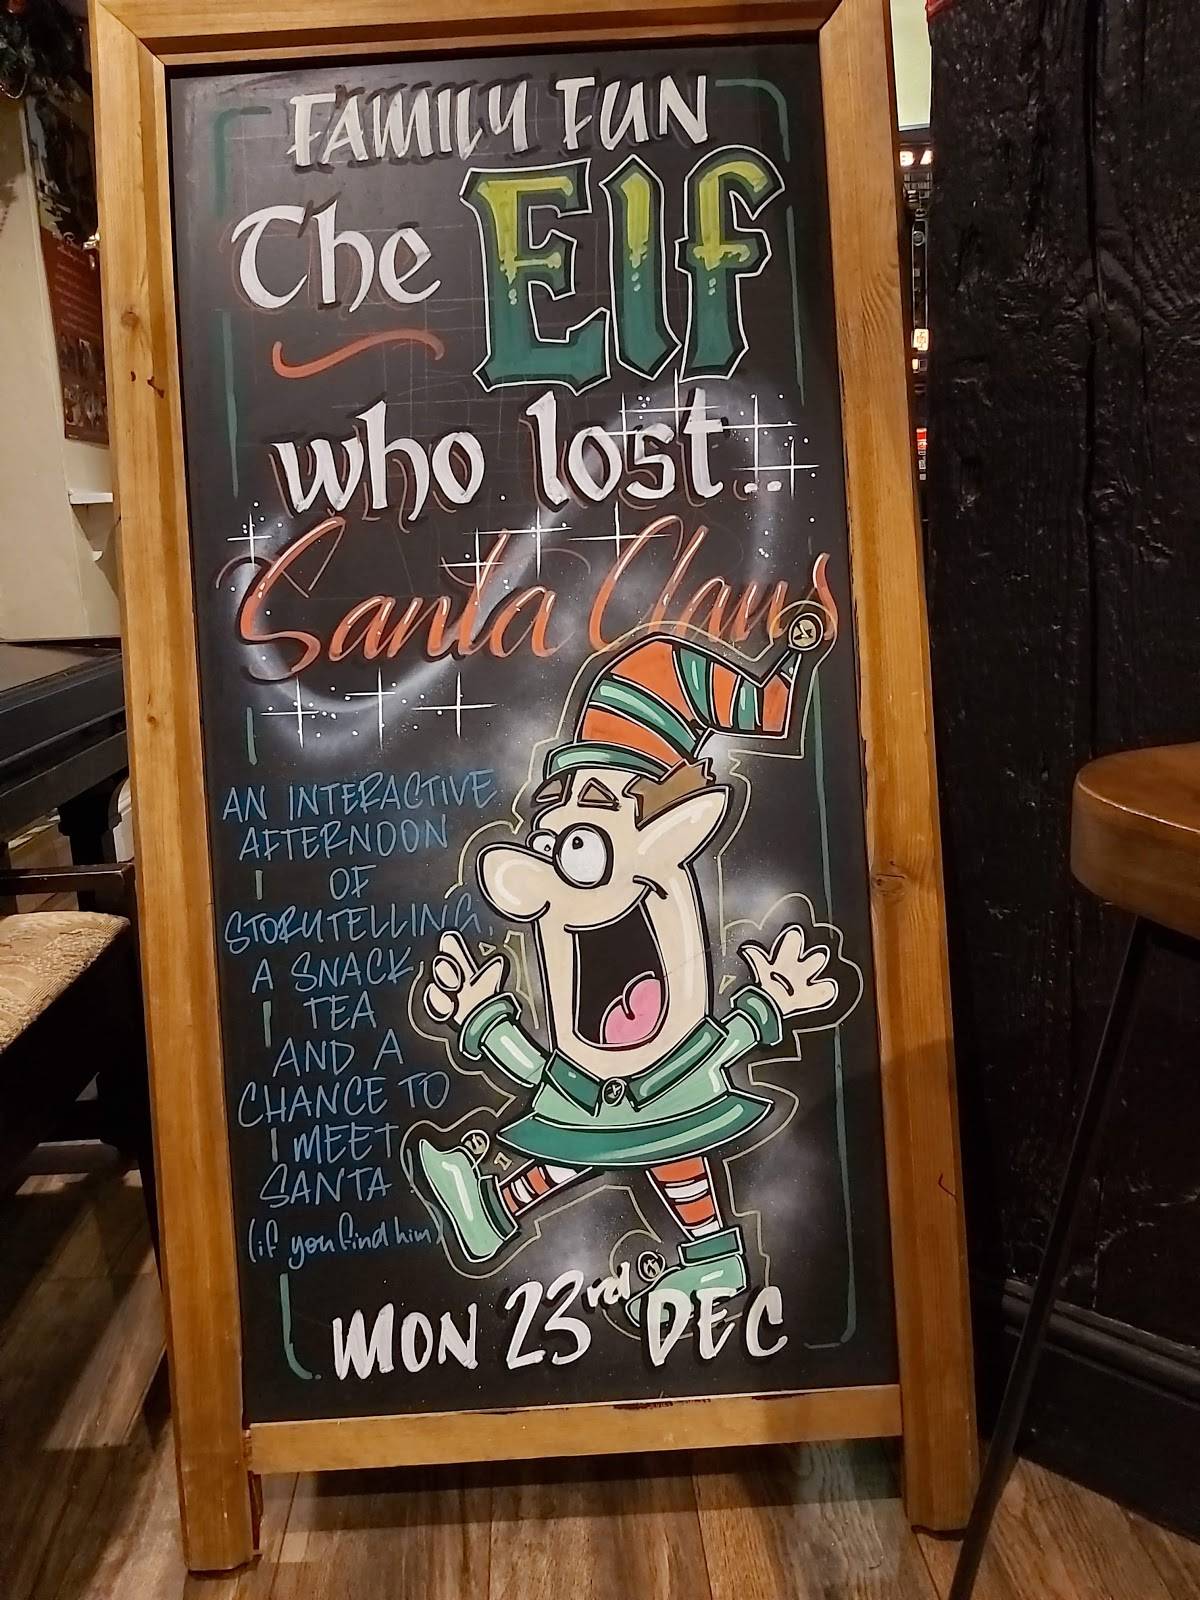 FAMILY FUN
The Elf
who lost..
Santa Claus
AN INTERACTIVE
AFTERNOON
OF
STORYTELLING,
A SNACK
TEA
AND A
CHANCE TO
MEET
SANTA!
(if you find him)
MON 23rd DEC